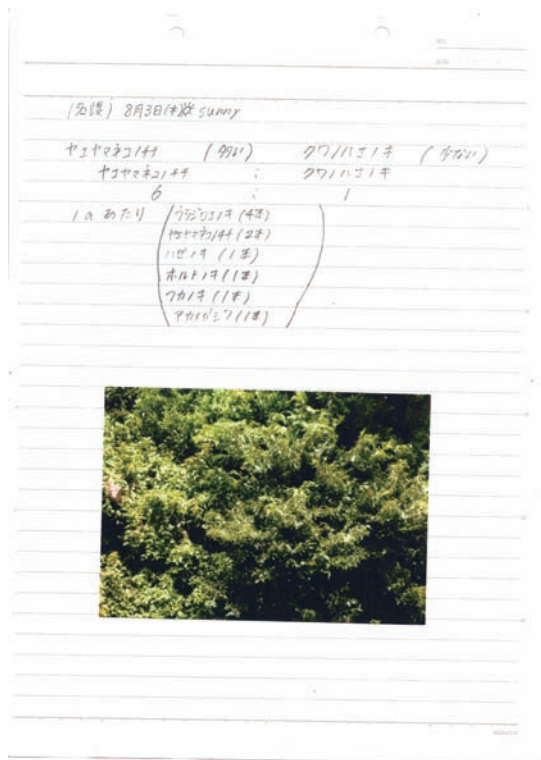 (名護) 8月3日(水) sunny
ヤエヤマネコノチチ (多い) クワノハエノキ (少ない)
ヤエヤマネコノチチ : クワノハエノキ
6 : 1
1a あたり
ウラジロエノキ (4本)
ヤエヤマネコノチチ (2本)
ハゼノキ (1本)
ホルトノキ (1本)
アカメガシワ (1本)